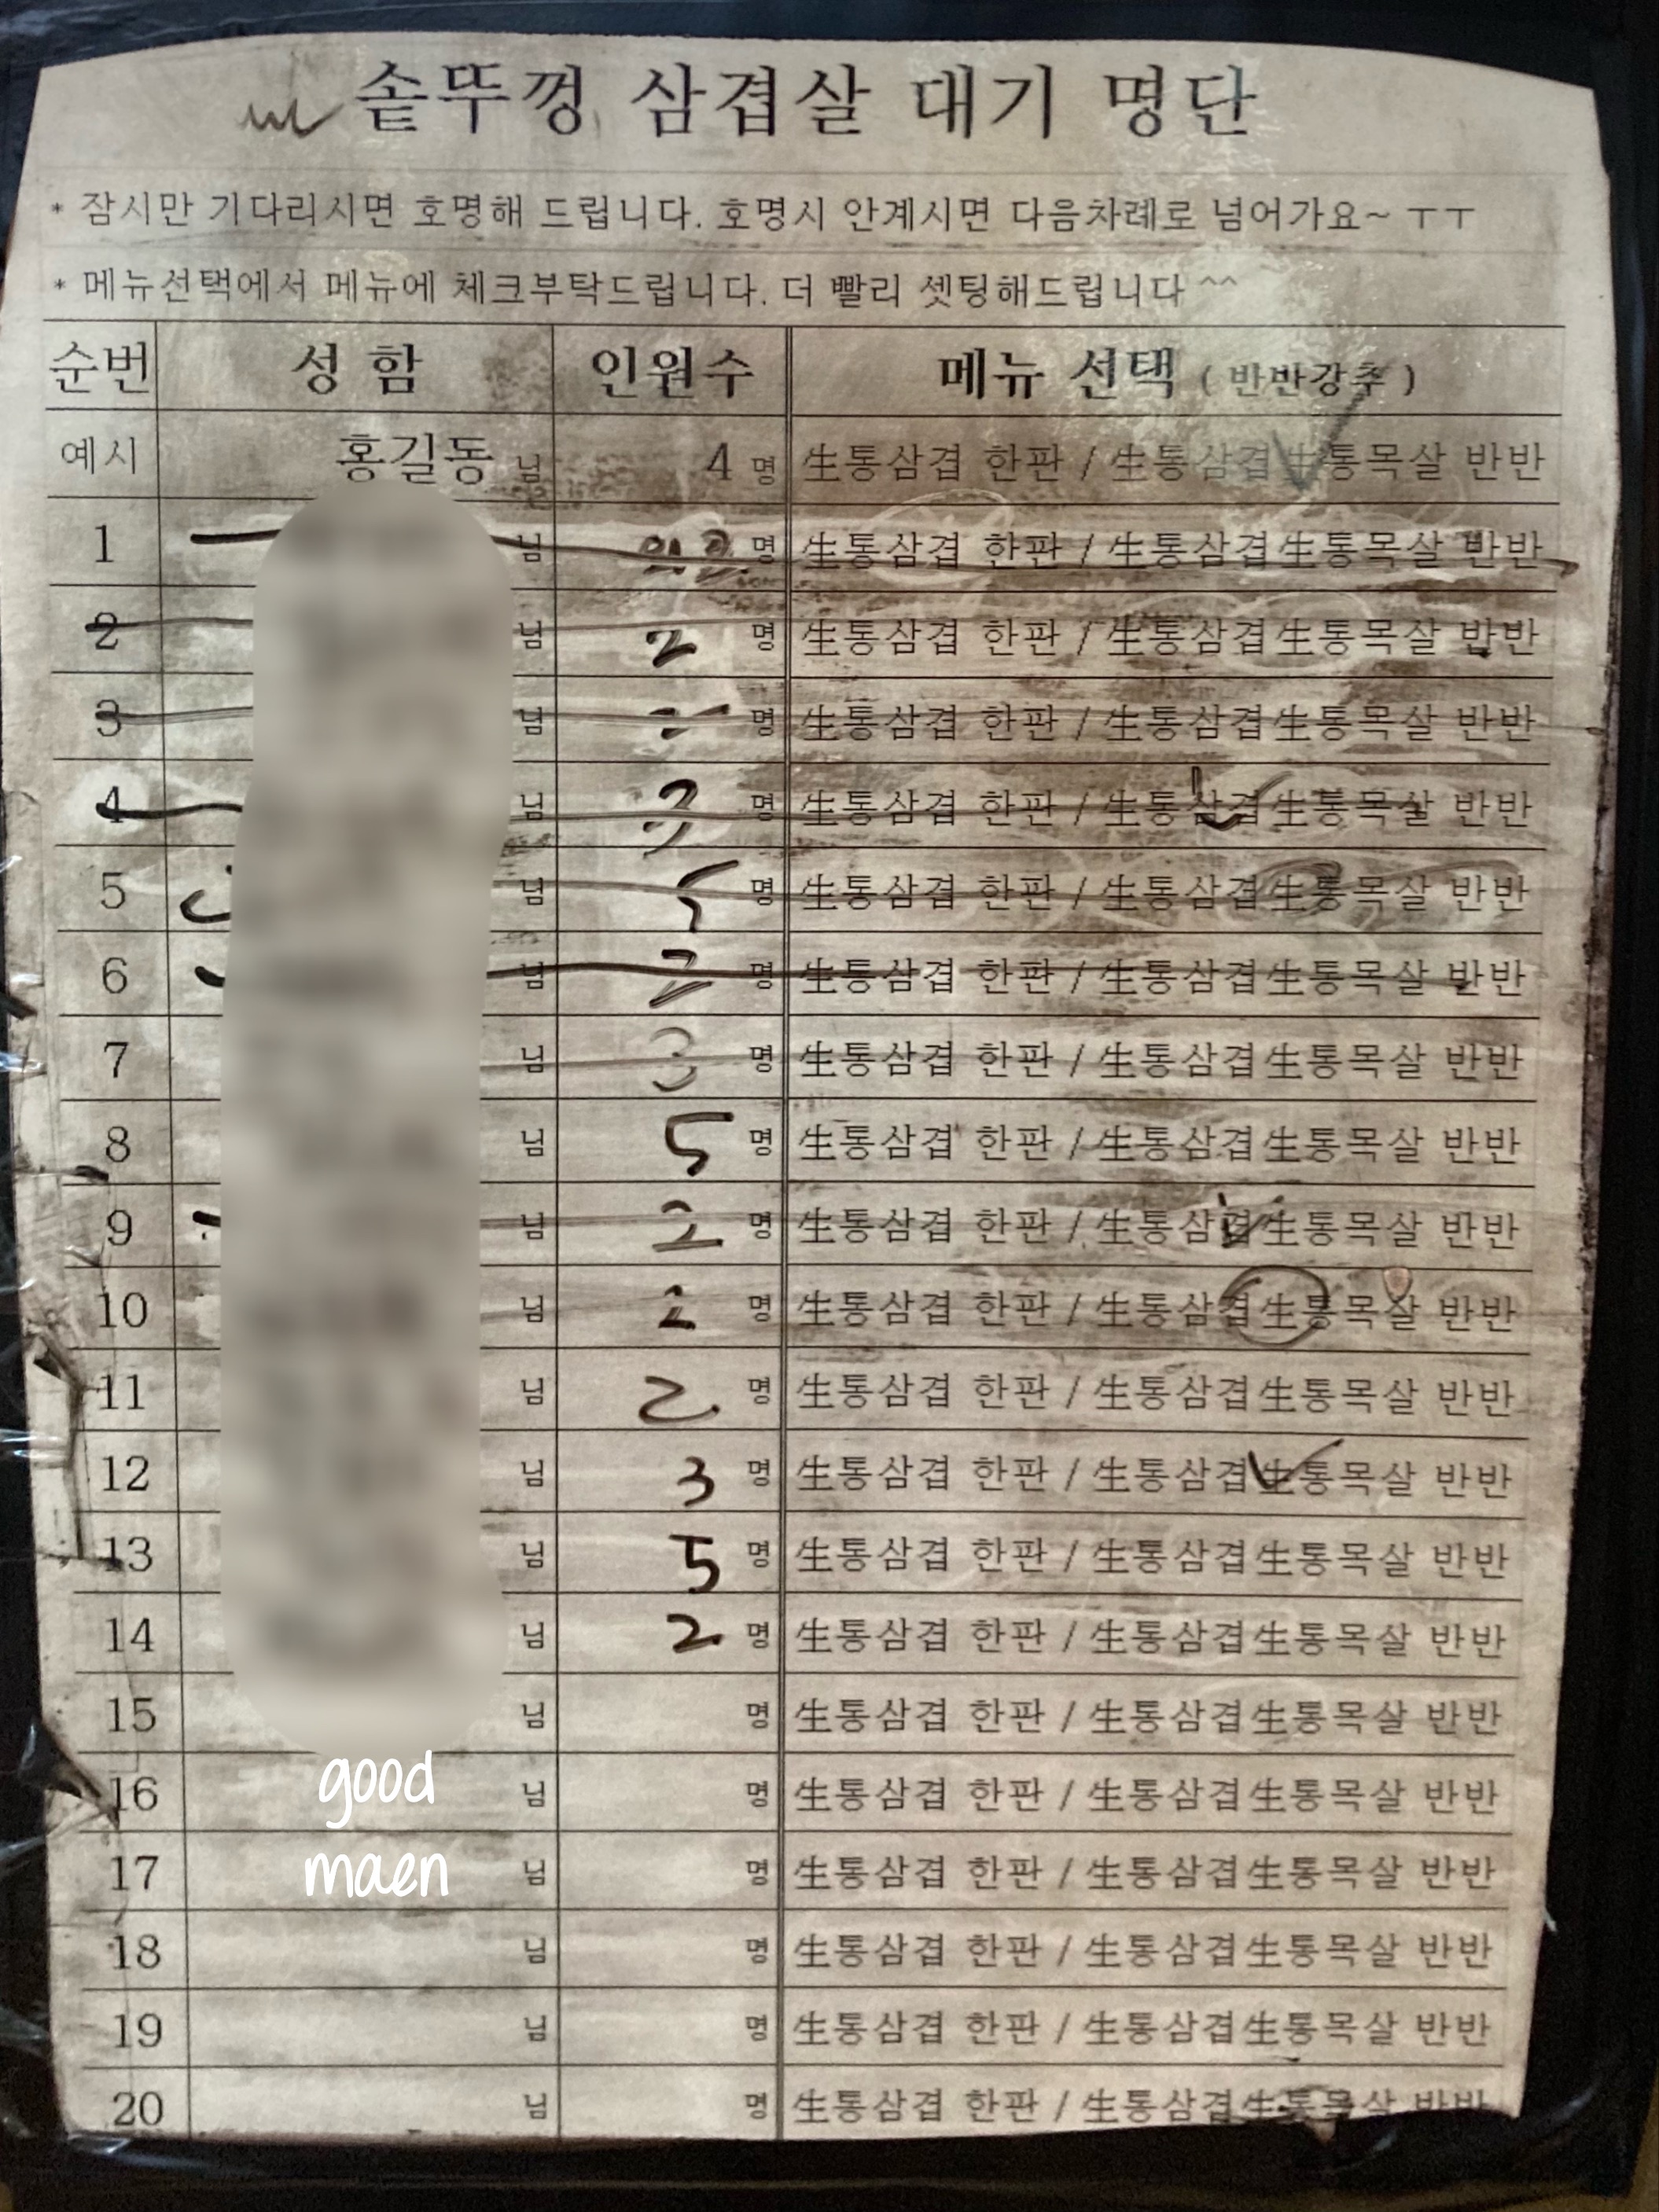 솥뚜껑 삼겹살 대기 명단
* 잠시만 기다리시면 호명해 드립니다. 호명시 안계시면 다음차례로 넘어가요~ ㅜㅜ
* 메뉴선택에서 메뉴에 체크부탁드립니다. 더 빨리 셋팅해드립니다 ^^
순번 성 함 인원수 메뉴 선택 ( 반반강추 )
예시 홍길동 님 4 명 生통삼겹 한판 / 生통삼겹生통목살 반반
1 님 명 生통삼겹 한판 / 生통삼겹生통목살 반반
2 님 2 명 生통삼겹 한판 / 生통삼겹生통목살 반반
3 님 명 生통삼겹 한판 / 生통삼겹生통목살 반반
4 님 3 명 生통삼겹 한판 / 生통삼겹生통목살 반반
5 님 5 명 生통삼겹 한판 / 生통삼겹生통목살 반반
6 님 2 명 生통삼겹 한판 / 生통삼겹生통목살 반반
7 님 3 명 生통삼겹 한판 / 生통삼겹生통목살 반반
8 님 5 명 生통삼겹 한판 / 生통삼겹生통목살 반반
9 님 2 명 生통삼겹 한판 / 生통삼겹生통목살 반반
10 님 2 명 生통삼겹 한판 / 生통삼겹生통목살 반반
11 님 2 명 生통삼겹 한판 / 生통삼겹生통목살 반반
12 님 3 명 生통삼겹 한판 / 生통삼겹生통목살 반반
13 님 5 명 生통삼겹 한판 / 生통삼겹生통목살 반반
14 님 2 명 生통삼겹 한판 / 生통삼겹生통목살 반반
15 님 명 生통삼겹 한판 / 生통삼겹生통목살 반반
16 good 님 명 生통삼겹 한판 / 生통삼겹生통목살 반반
17 maen 님 명 生통삼겹 한판 / 生통삼겹生통목살 반반
18 님 명 生통삼겹 한판 / 生통삼겹生통목살 반반
19 님 명 生통삼겹 한판 / 生통삼겹生통목살 반반
20 님 명 生통삼겹 한판 / 生통삼겹生통목살 반반